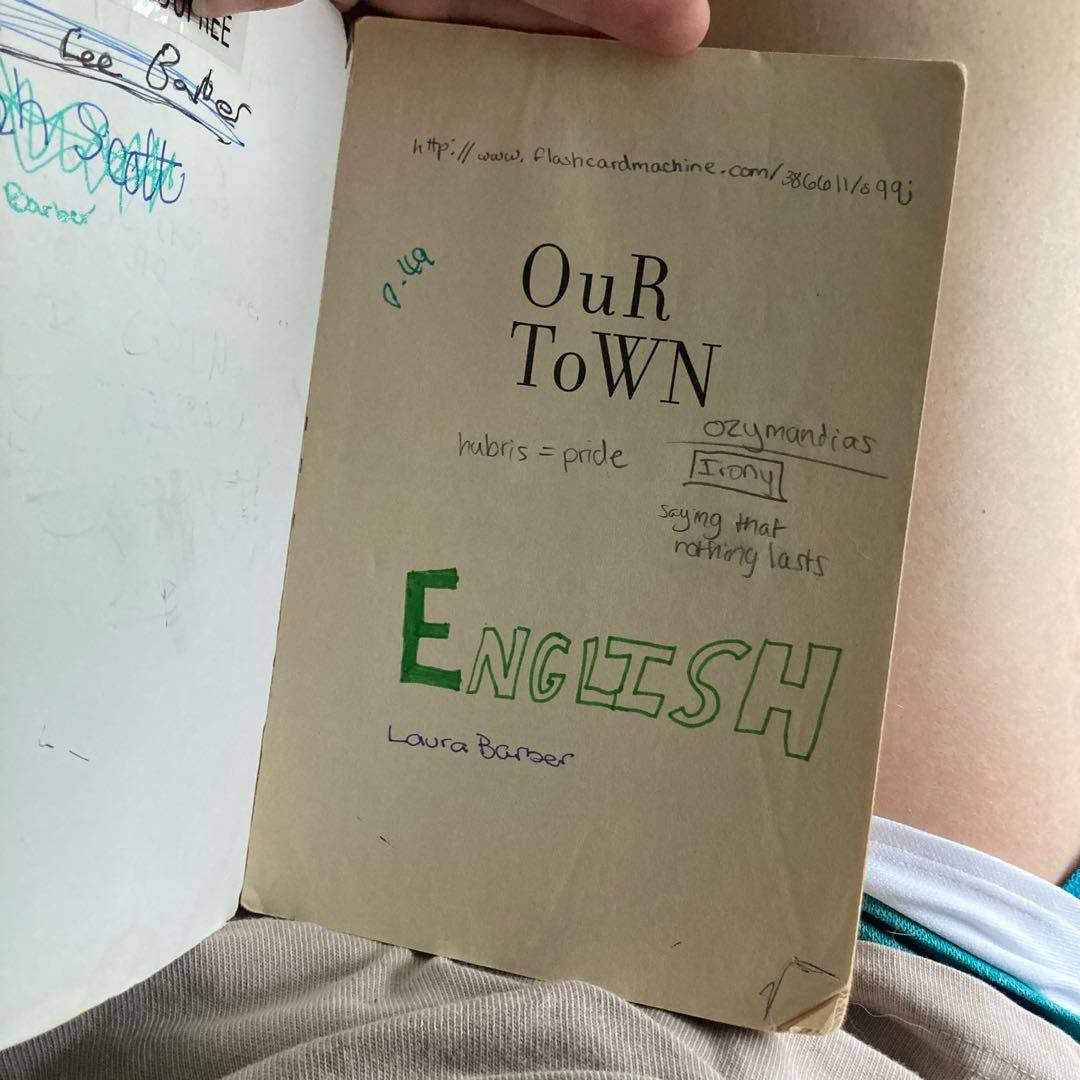 Lee Barber
Scott
Barber
http://www.flashcardmachine.com/386611/s99j
p.49
OuR
ToWN
hubris = pride
ozymandias
Irony
saying that
nothing lasts
ENGLISH
Laura Barber